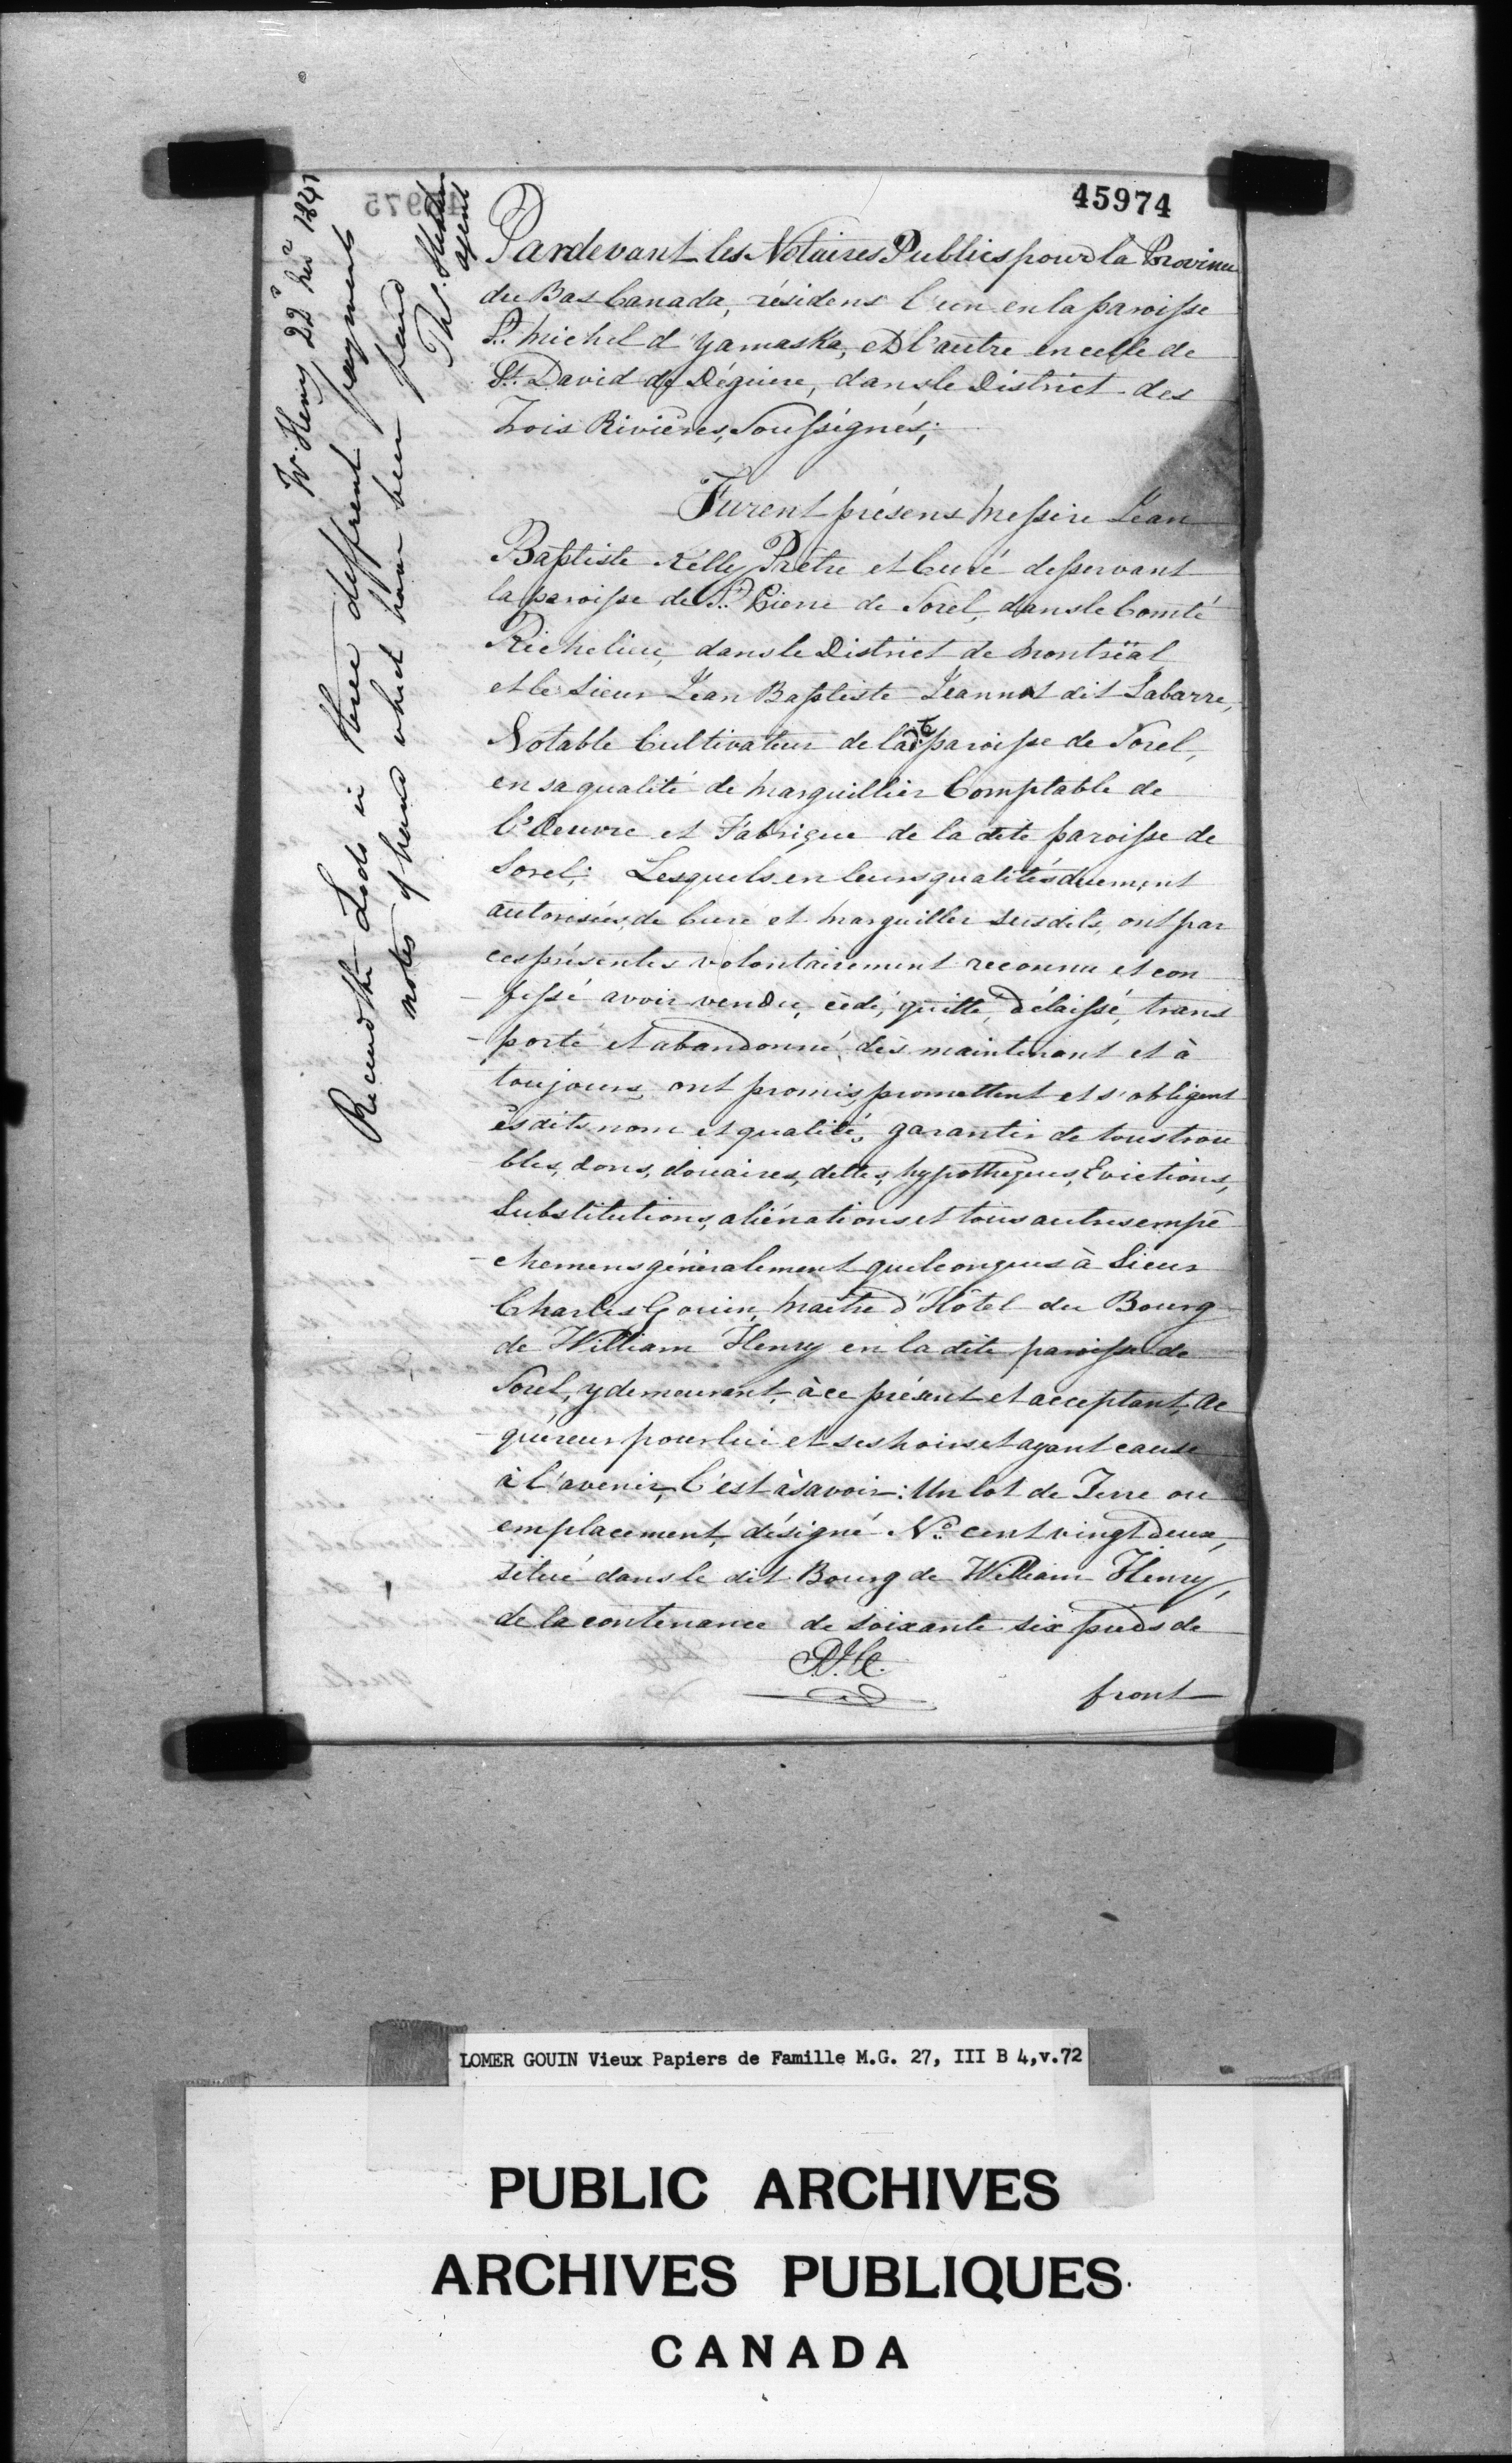 45974
Pardevant les Notaires Publics pour la Province
du Bas Canada, résidens l'un en la paroisse
St. Michel d'Yamaska, et l'autre en celle de
St. David de Déguire, dans le District des
Trois Rivières, Soussignés;
Furent présens Messire Jean
Baptiste Kelly Prêtre et Curé desservant
la paroisse de St. Pierre de Sorel, dans le Comté
Richelieu, dans le District de Montréal
et le Sieur Jean Baptiste Jeannot dit Labarre,
Notable Cultivateur de la dte paroisse de Sorel,
en sa qualité de Marguillier Comptable de
l'Oeuvre et Fabrique de la dite paroisse de
Sorel; Lesquels en leurs qualités duement
autorisées, de Curé et Marguiller susdits, ont par
ces présentes volontairement reconnu et con
fessé avoir vendu, cédé, quitté, délaissé, trans
-porté et abandonné, dès maintenant et à
toujours, ont promis, promettent et s'obligent
èsdits nom et qualité, garantir de tous trou
bles, dons, douaires, dettes, hypotheques, Evictions,
Substitutions, aliénations et tous autres empê
-chemens généralement quelconques à Sieur
Charles Gouin, Maître d'Hôtel du Bourg
de William Henry en la dite paroisse de
Sorel, y demeurant, à ce présent et acceptant, ac
-quéreur pour lui et ses hoirs et ayant cause
à l'avenir, C'est à savoir: Un lot de Terre ou
emplacement, désigné No. cent vingt deux,
situé dans le dit Bourg de William Henry,
de la contenance de soixante six pieds de
front
Wm. Henry 22d 1841
Received the Lods in three different payments
notes of hand which have been paid
agent
45975
LOMER GOUIN Vieux Papiers de Famille M.G. 27, III B 4,v.72
PUBLIC ARCHIVES
ARCHIVES PUBLIQUES
CANADA